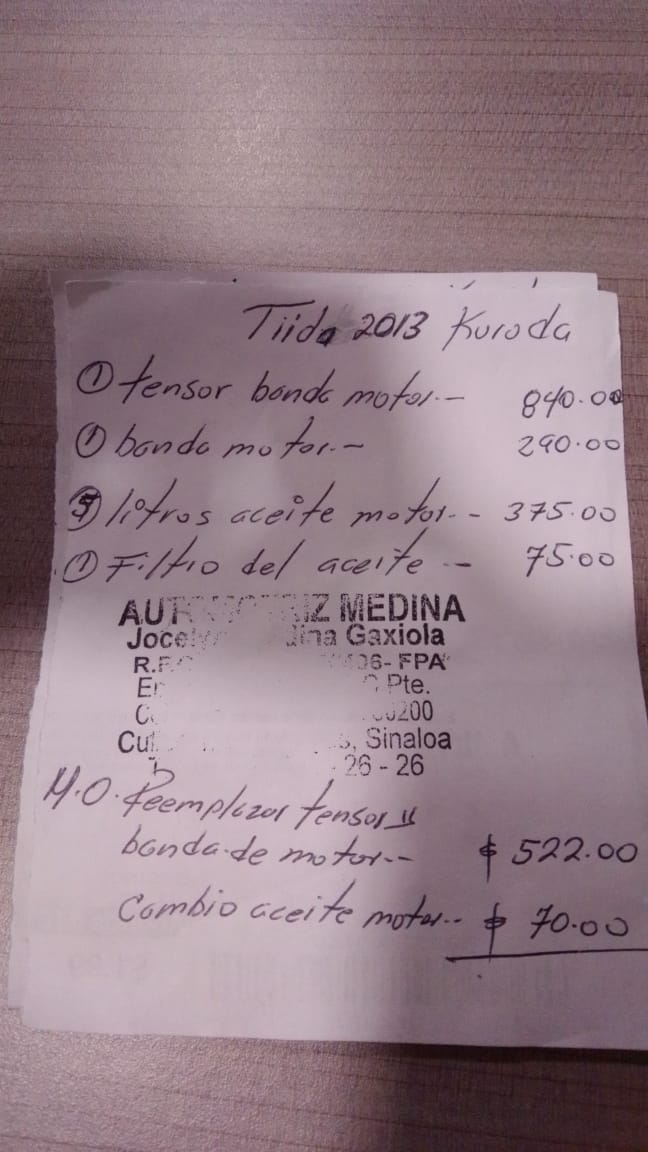 Tiida 2013 Kuroda
① tensor banda motor.- 840.00
① banda motor.- 290.00
⑤ litros aceite motor.- 375.00
① Filtro del aceite -- 75.00
MEDINA
Gaxiola
FPA
Pte.
Sinaloa
26 - 26
M.O. Reemplazar tensor y
banda de motor-- $ 522.00
Cambio aceite motor.. $ 70.00